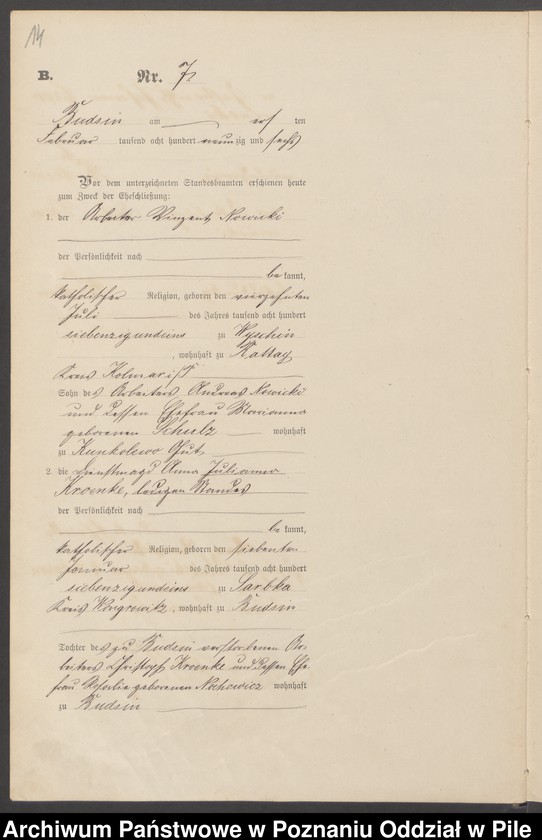 14
B. Nr. 7
Budsin am ersten
Februar tausend acht hundert neunzig und sechs
Vor dem unterzeichneten Standesbeamten erschienen heute
zum Zweck der Eheschließung:
1. der Arbeiter Vinzent Nowicki
der Persönlichkeit nach
bekannt,
katholischer Religion, geboren den vierzehnten
Juli des Jahres tausend acht hundert
siebenzigundeins zu Wyschin
, wohnhaft zu Rattay
Kreis Kolmar i/P
Sohn des Arbeiters Andreas Nowicki
und dessen Ehefrau Marianna
geborenen Schulz wohnhaft
zu Kunkolewo Gut
2. die Dienstmagd Anna Julianna
Kroenke, ledigen Standes
der Persönlichkeit nach
bekannt,
katholischer Religion, geboren den siebenten
Januar des Jahres tausend acht hundert
siebenzigundeins zu Sarbka
Kreis Wongrowitz, wohnhaft zu Budsin
Tochter des zu Budsin verstorbenen Ar-
beiters Christoph Kroenke und dessen Ehe-
frau geborenen wohnhaft
zu Budsin
Archiwum Państwowe w Poznaniu Oddział w Pile